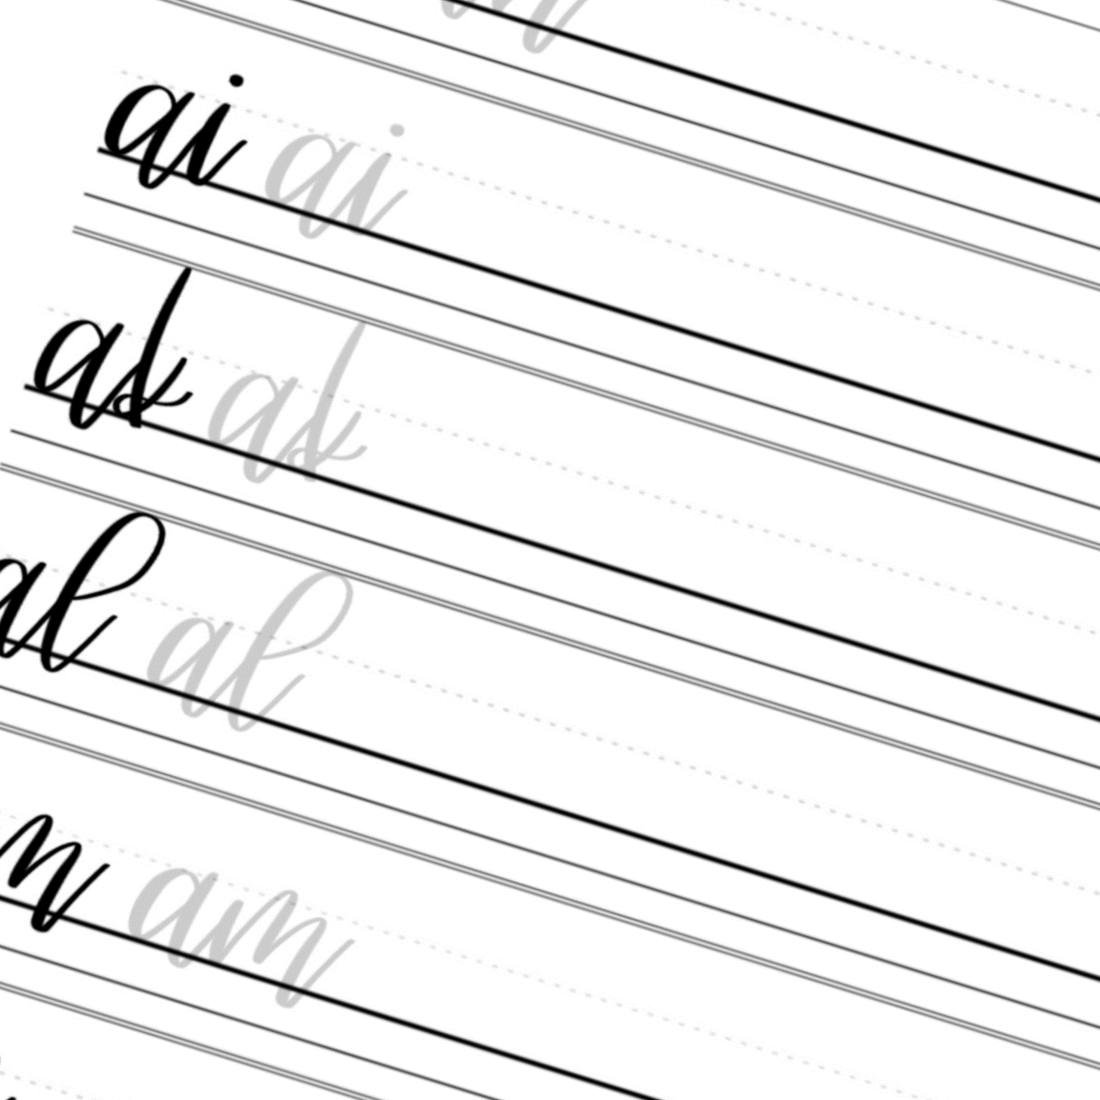 ai ai
ak ak
al al
m am